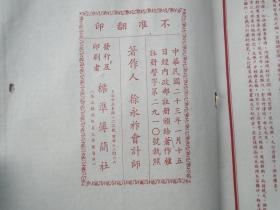 不准翻印
中華民國二十三年一月十五
日經內政部註册頒給著作權
註册警字第二九一〇號執照
著作人　徐永祚會計師
發行及印刷者　標準簿簡社